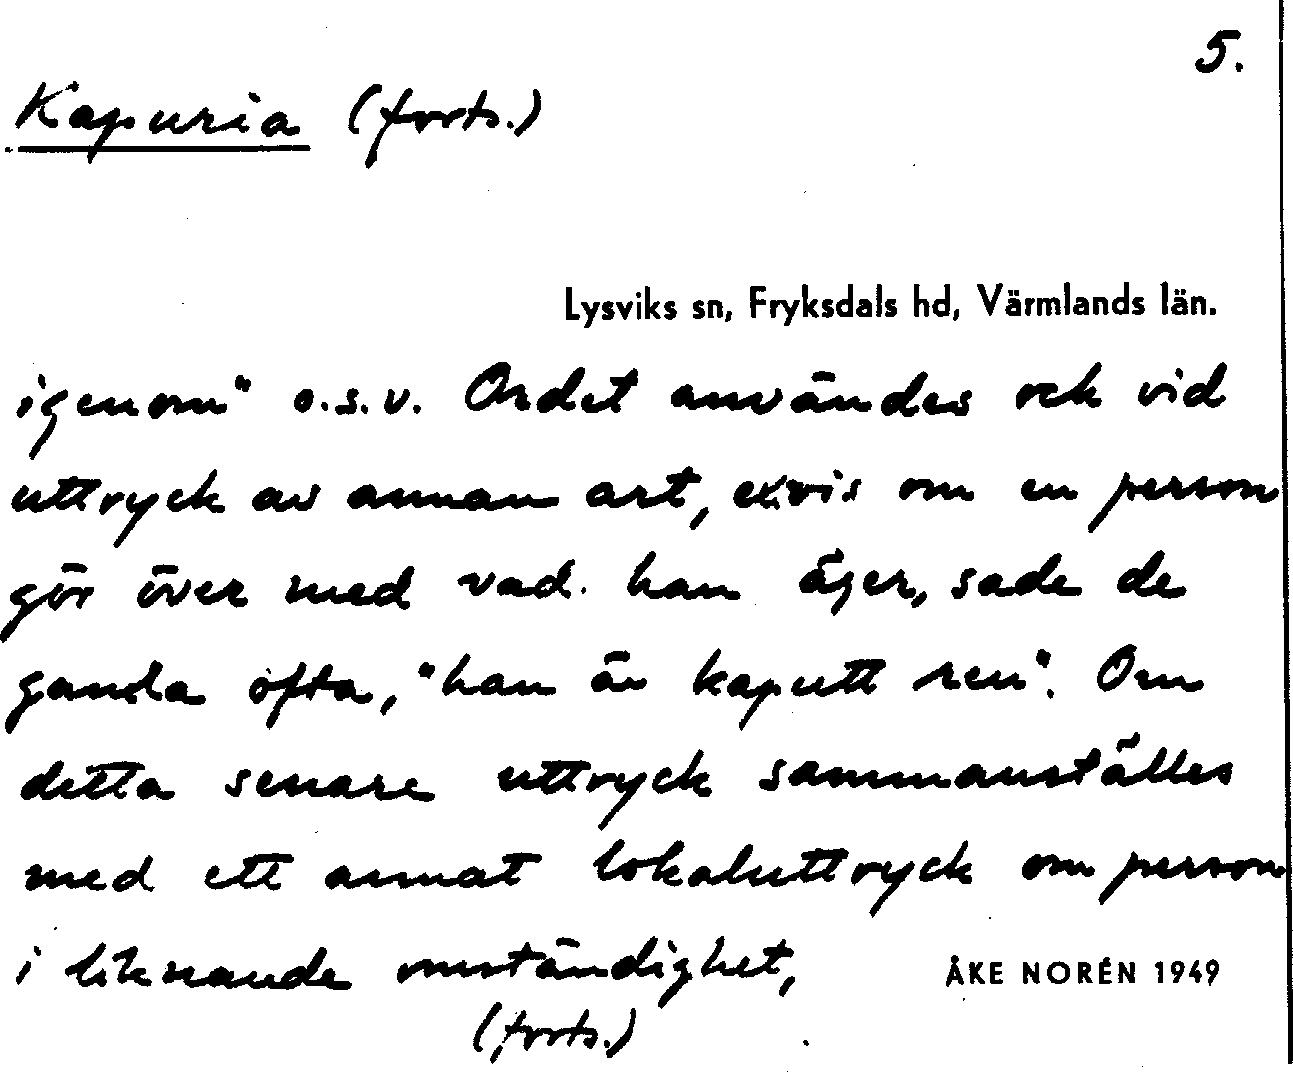 5.
Kapuria (forts.)
Lysviks sn, Fryksdals hd, Värmlands län.
igenom" o.s.v. Ordet användes ock vid
uttryck av annan art, ex.vis om en person
gör över med vad han äger, sade de
gamla ofta, "han är kaputt ren". Om
detta senare uttryck sammanställes
med ett annat lokaluttryck om person
i liknande omständighet,
ÅKE NORÉN 1949
(forts.)